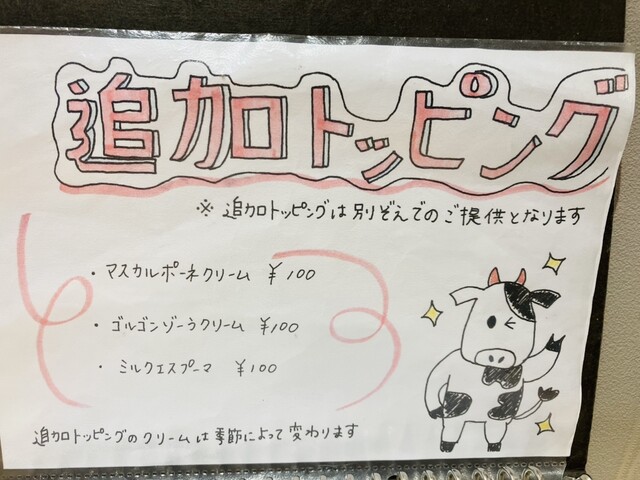 追加トッピング
※ 追加トッピングは別ぞえでのご提供となります
・マスカルポーネクリーム ¥100
・ゴルゴンゾーラクリーム ¥100
・ミルクエスプーマ ¥100
追加トッピングのクリームは季節によって変わります